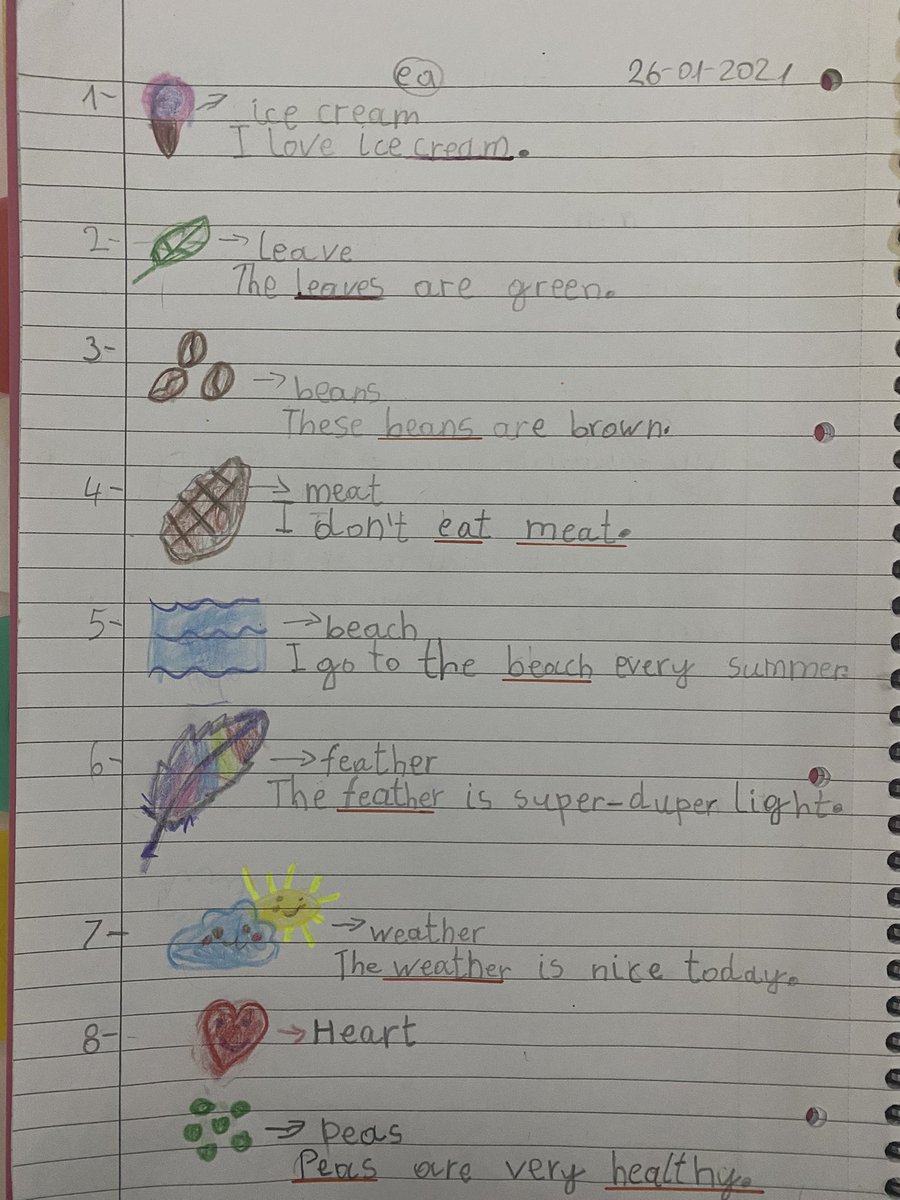 ea 26-01-2021
1- → ice cream
I love ice cream.
2- → leave
The leaves are green.
3-
→ beans
These beans are brown.
4- → meat
I don't eat meat.
5- → beach
I go to the beach every summer.
6- → feather
The feather is super-duper light.
7- → weather
The weather is nice today.
8- → Heart
→ peas
Peas are very healthy.